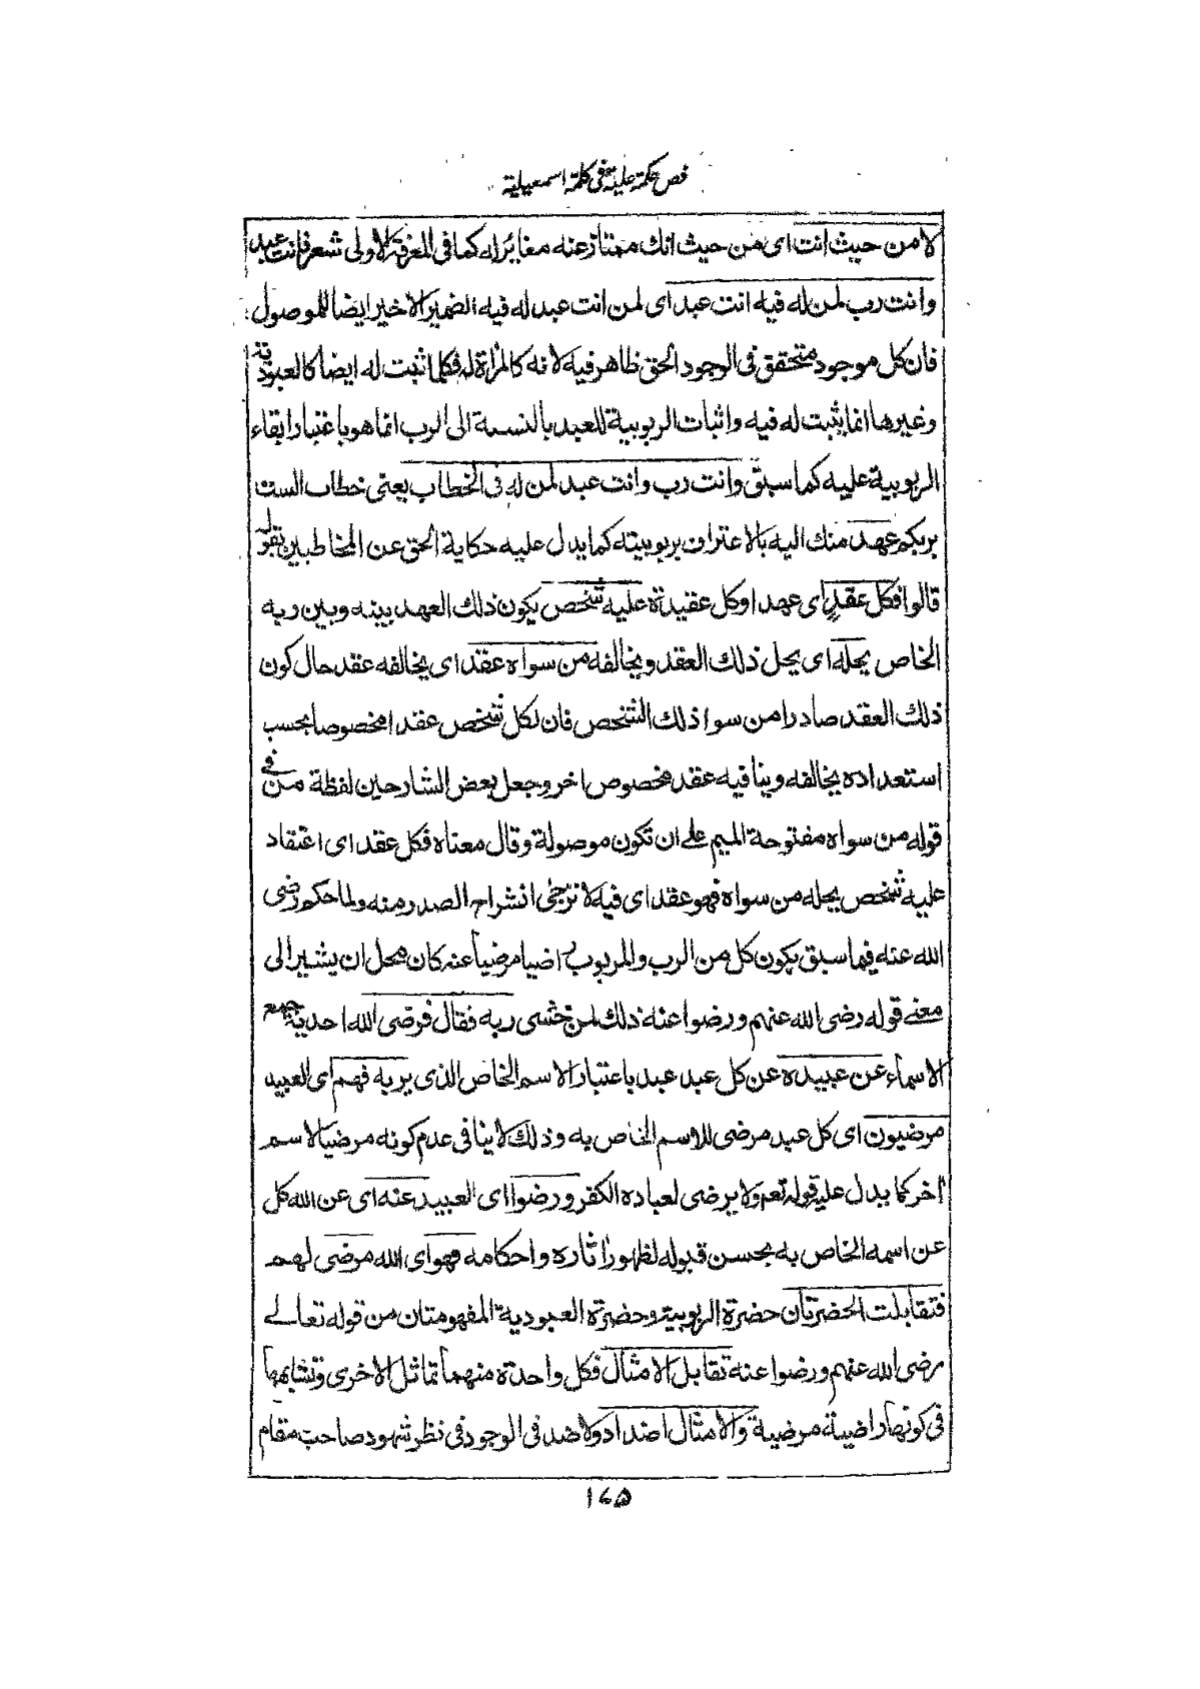 فص حكمة علية في كلمة اسمعيلية
لا من حيث انت اى من حيث انك ممتاز عنه مغائر له كما فى المعرفة الاولى شعر فانت عبد
وانت رب لمن له فيه انت عبد اى لمن انت عبد له فيه الضمير الاخير ايضا للموصول
فان كل موجود متحقق فى الوجود الحق ظاهر فيه لانه كالمرآة له فكلما ثبت له ايضا كالعبودية
وغيرها انما يثبت له فيه واثبات الربوبية للعبد بالنسبة الى الرب انما هو باعتبار ابقاء
الربوبية عليه كما سبق وانت رب وانت عبد لمن له فى الخطاب يعنى خطاب الست
بربكم عهد منك اليه بالاعتراف بربوبيته كما يدل عليه حكاية الحق عن المخاطبين بقوله
قالوا فكل عقد اى عهد او كل عقيدة عليه شخص يكون ذلك العهد بينه وبين ربه
الخاص يحله اى يحل ذلك العقد ويخالفه من سواه عقد اى يخالفه عقد حال كون
ذلك العقد صادرا من سوا ذلك الشخص فان لكل شخص عقدا مخصوصا بحسب
استعداده يخالفه وينافيه عقد مخصوص اخر وجعل بعض الشارحين لفظة من فى
قوله من سواه مفتوحة الميم على ان تكون موصولة وقال معناه فكل عقد اى اعتقاد
عليه شخص يحله من سواه فهو عقد اى فيه لا نرجى انشراح الصدر منه ولما حكم رضى
الله عنه فيما سبق بكون كل من الرب والمربوب راضيا مرضيا عنه كان محل ان يشير الى
معنى قوله رضى الله عنهم ورضوا عنه ذلك لمن خشى ربه فقال فرضى الله احدية جمع
الاسماء عن عبيده عن كل عبد عبد باعتبار الاسم الخاص الذى يربه فهم اى العبيد
مرضيون اى كل عبد مرضى للاسم الخاص به وذلك لا ينافى عدم كونه مرضيا لاسم
آخر كما يدل عليه قوله تعم ولا يرضى لعباده الكفر ورضوا اى العبيد عنه اى عن الله كل
عن اسمه الخاص به بحسن قبوله لظهور آثاره واحكامه فهو اى الله مرضى لهم
فتقابلت الحضرتان حضرة الربوبية وحضرة العبودية المفهومتان من قوله تعالى
رضى الله عنهم ورضوا عنه تقابل الامثال فكل واحدة منهما تماثل الاخرى وتشابهها
فى كونها راضية مرضية والامثال اضداد ولا ضد فى الوجود فى نظر شهود صاحب مقام
١٤٥